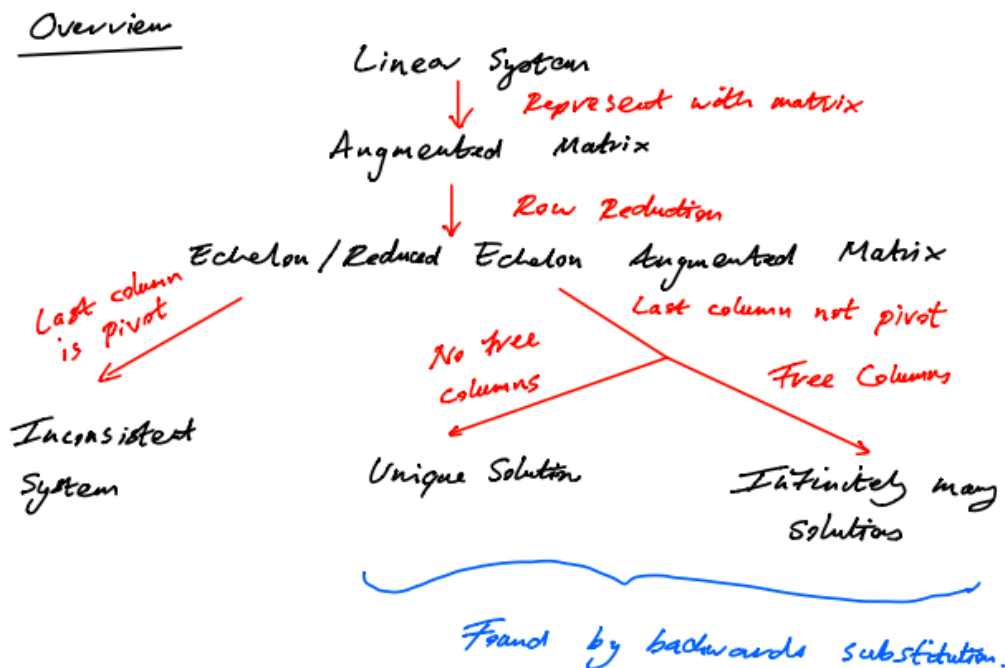 Overview
Linear System
Represent with matrix
Augmented Matrix
Row Reduction
Echelon / Reduced Echelon Augmented Matrix
Last column
is pivot
Last column not pivot
No free
columns
Free Columns
Inconsistent
System
Unique Solution
Infinitely many
solutions
Found by backwards substitution.